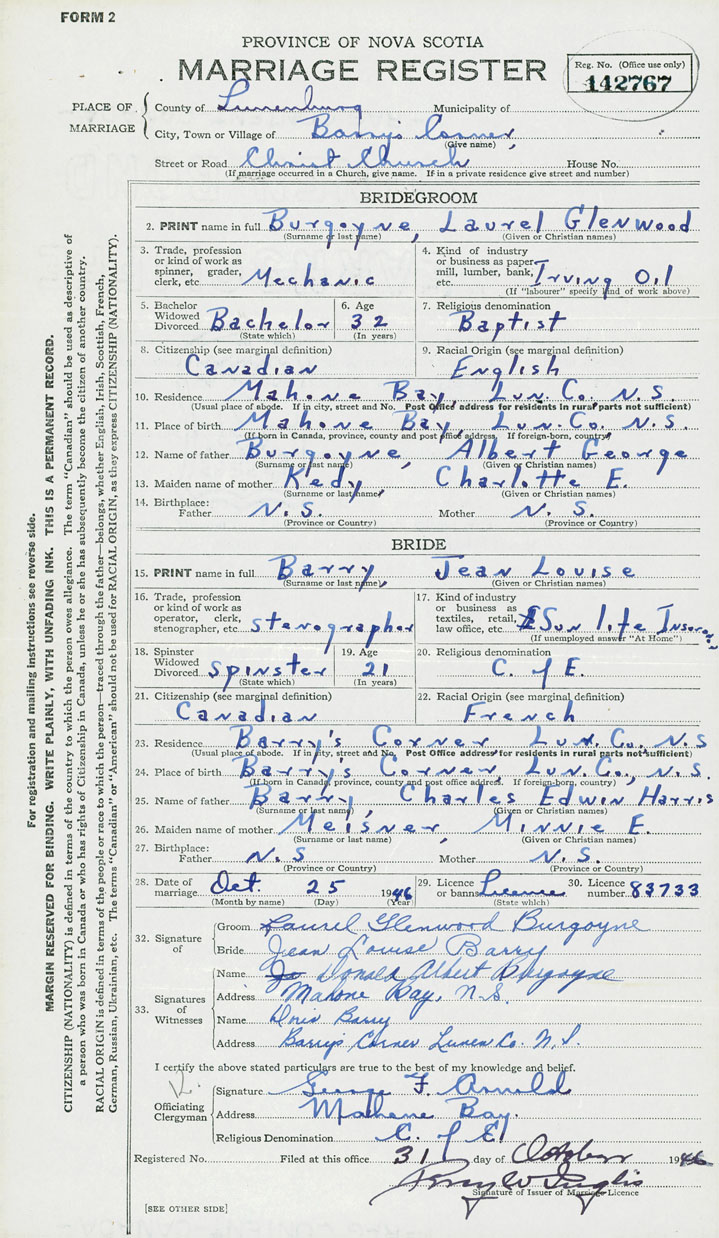 FORM 2
PROVINCE OF NOVA SCOTIA
MARRIAGE REGISTER
Reg. No. (Office use only)
142767
PLACE OF MARRIAGE
County of Lunenburg Municipality of
City, Town or Village of Barrys Corner,
(Give name)
Street or Road Christ Church House No.
(If marriage occurred in a Church, give name. If in a private residence give street and number)
BRIDEGROOM
2. PRINT name in full Burgoyne, Laurel Glenwood
(Surname or last name) (Given or Christian names)
3. Trade, profession or kind of work as spinner, grader, clerk, etc. Mechanic
4. Kind of industry or business as paper mill, lumber, bank, etc. Irving Oil
(If "labourer" specify kind of work above)
5. Bachelor Widowed Divorced Bachelor
(State which)
6. Age 32
(In years)
7. Religious denomination Baptist
8. Citizenship (see marginal definition) Canadian
9. Racial Origin (see marginal definition) English
10. Residence Mahone Bay, Lun. Co. N. S.
(Usual place of abode. If in city, street and No. Post Office address for residents in rural parts not sufficient)
11. Place of birth Mahone Bay, Lun. Co. N. S.
(If born in Canada, province, county and post office address. If foreign-born, country)
12. Name of father Burgoyne, Albert George
(Surname or last name) (Given or Christian names)
13. Maiden name of mother Kedy, Charlotte E.
(Surname or last name) (Given or Christian names)
14. Birthplace: Father N. S. Mother N. S.
(Province or Country) (Province or Country)
BRIDE
15. PRINT name in full Barry, Jean Louise
(Surname or last name) (Given or Christian names)
16. Trade, profession or kind of work as operator, clerk, stenographer, etc. Stenographer
17. Kind of industry or business as textiles, retail, law office, etc. Sun life
(If unemployed answer "At Home")
18. Spinster Widowed Divorced Spinster
(State which)
19. Age 21
(In years)
20. Religious denomination C. of E.
21. Citizenship (see marginal definition) Canadian
22. Racial Origin (see marginal definition) French
23. Residence Barry's Corner Lun. Co. N. S
(Usual place of abode. If in city, street and No. Post Office address for residents in rural parts not sufficient)
24. Place of birth Barry's Corner, Lun. Co., N. S.
(If born in Canada, province, county and post office address. If foreign-born, country)
25. Name of father Barry, Charles Edwin Harris
(Surname or last name) (Given or Christian names)
26. Maiden name of mother Meisner, Minnie E.
(Surname or last name) (Given or Christian names)
27. Birthplace: Father N. S Mother N. S.
(Province or Country) (Province or Country)
28. Date of marriage Oct. 25 1946
(Month by name) (Day) (Year)
29. Licence or banns Licence
(State which)
30. Licence number 83733
32. Signature of
Groom Laurel Glenwood Burgoyne
Bride Jean Louise Barry
33. Signatures of Witnesses
Name Donald Albert Burgoyne
Address Mahone Bay, N.S.
Name Doris Barry
Address Barrys Corner Lunen Co. N. S.
I certify the above stated particulars are true to the best of my knowledge and belief.
Officiating Clergyman
Signature George F. Arnold
Address Mahone Bay.
Religious Denomination C. of E.
Registered No. Filed at this office 31 day of October 1946
Perry W Inglis
Signature of Issuer of Marriage Licence
[SEE OTHER SIDE]
For registration and mailing instructions see reverse side.
MARGIN RESERVED FOR BINDING. WRITE PLAINLY, WITH UNFADING INK. THIS IS A PERMANENT RECORD.
CITIZENSHIP (NATIONALITY) is defined in terms of the country to which the person owes allegiance. The term "Canadian" should be used as descriptive of
a person who was born in Canada or who has rights of Citizenship in Canada, unless he or she has subsequently become the citizen of another country.
RACIAL ORIGIN is defined in terms of the people or race to which the person—traced through the father—belongs, whether English, Irish, Scottish, French,
German, Russian, Ukrainian, etc. The terms "Canadian" or "American" should not be used for RACIAL ORIGIN, as they express CITIZENSHIP (NATIONALITY).